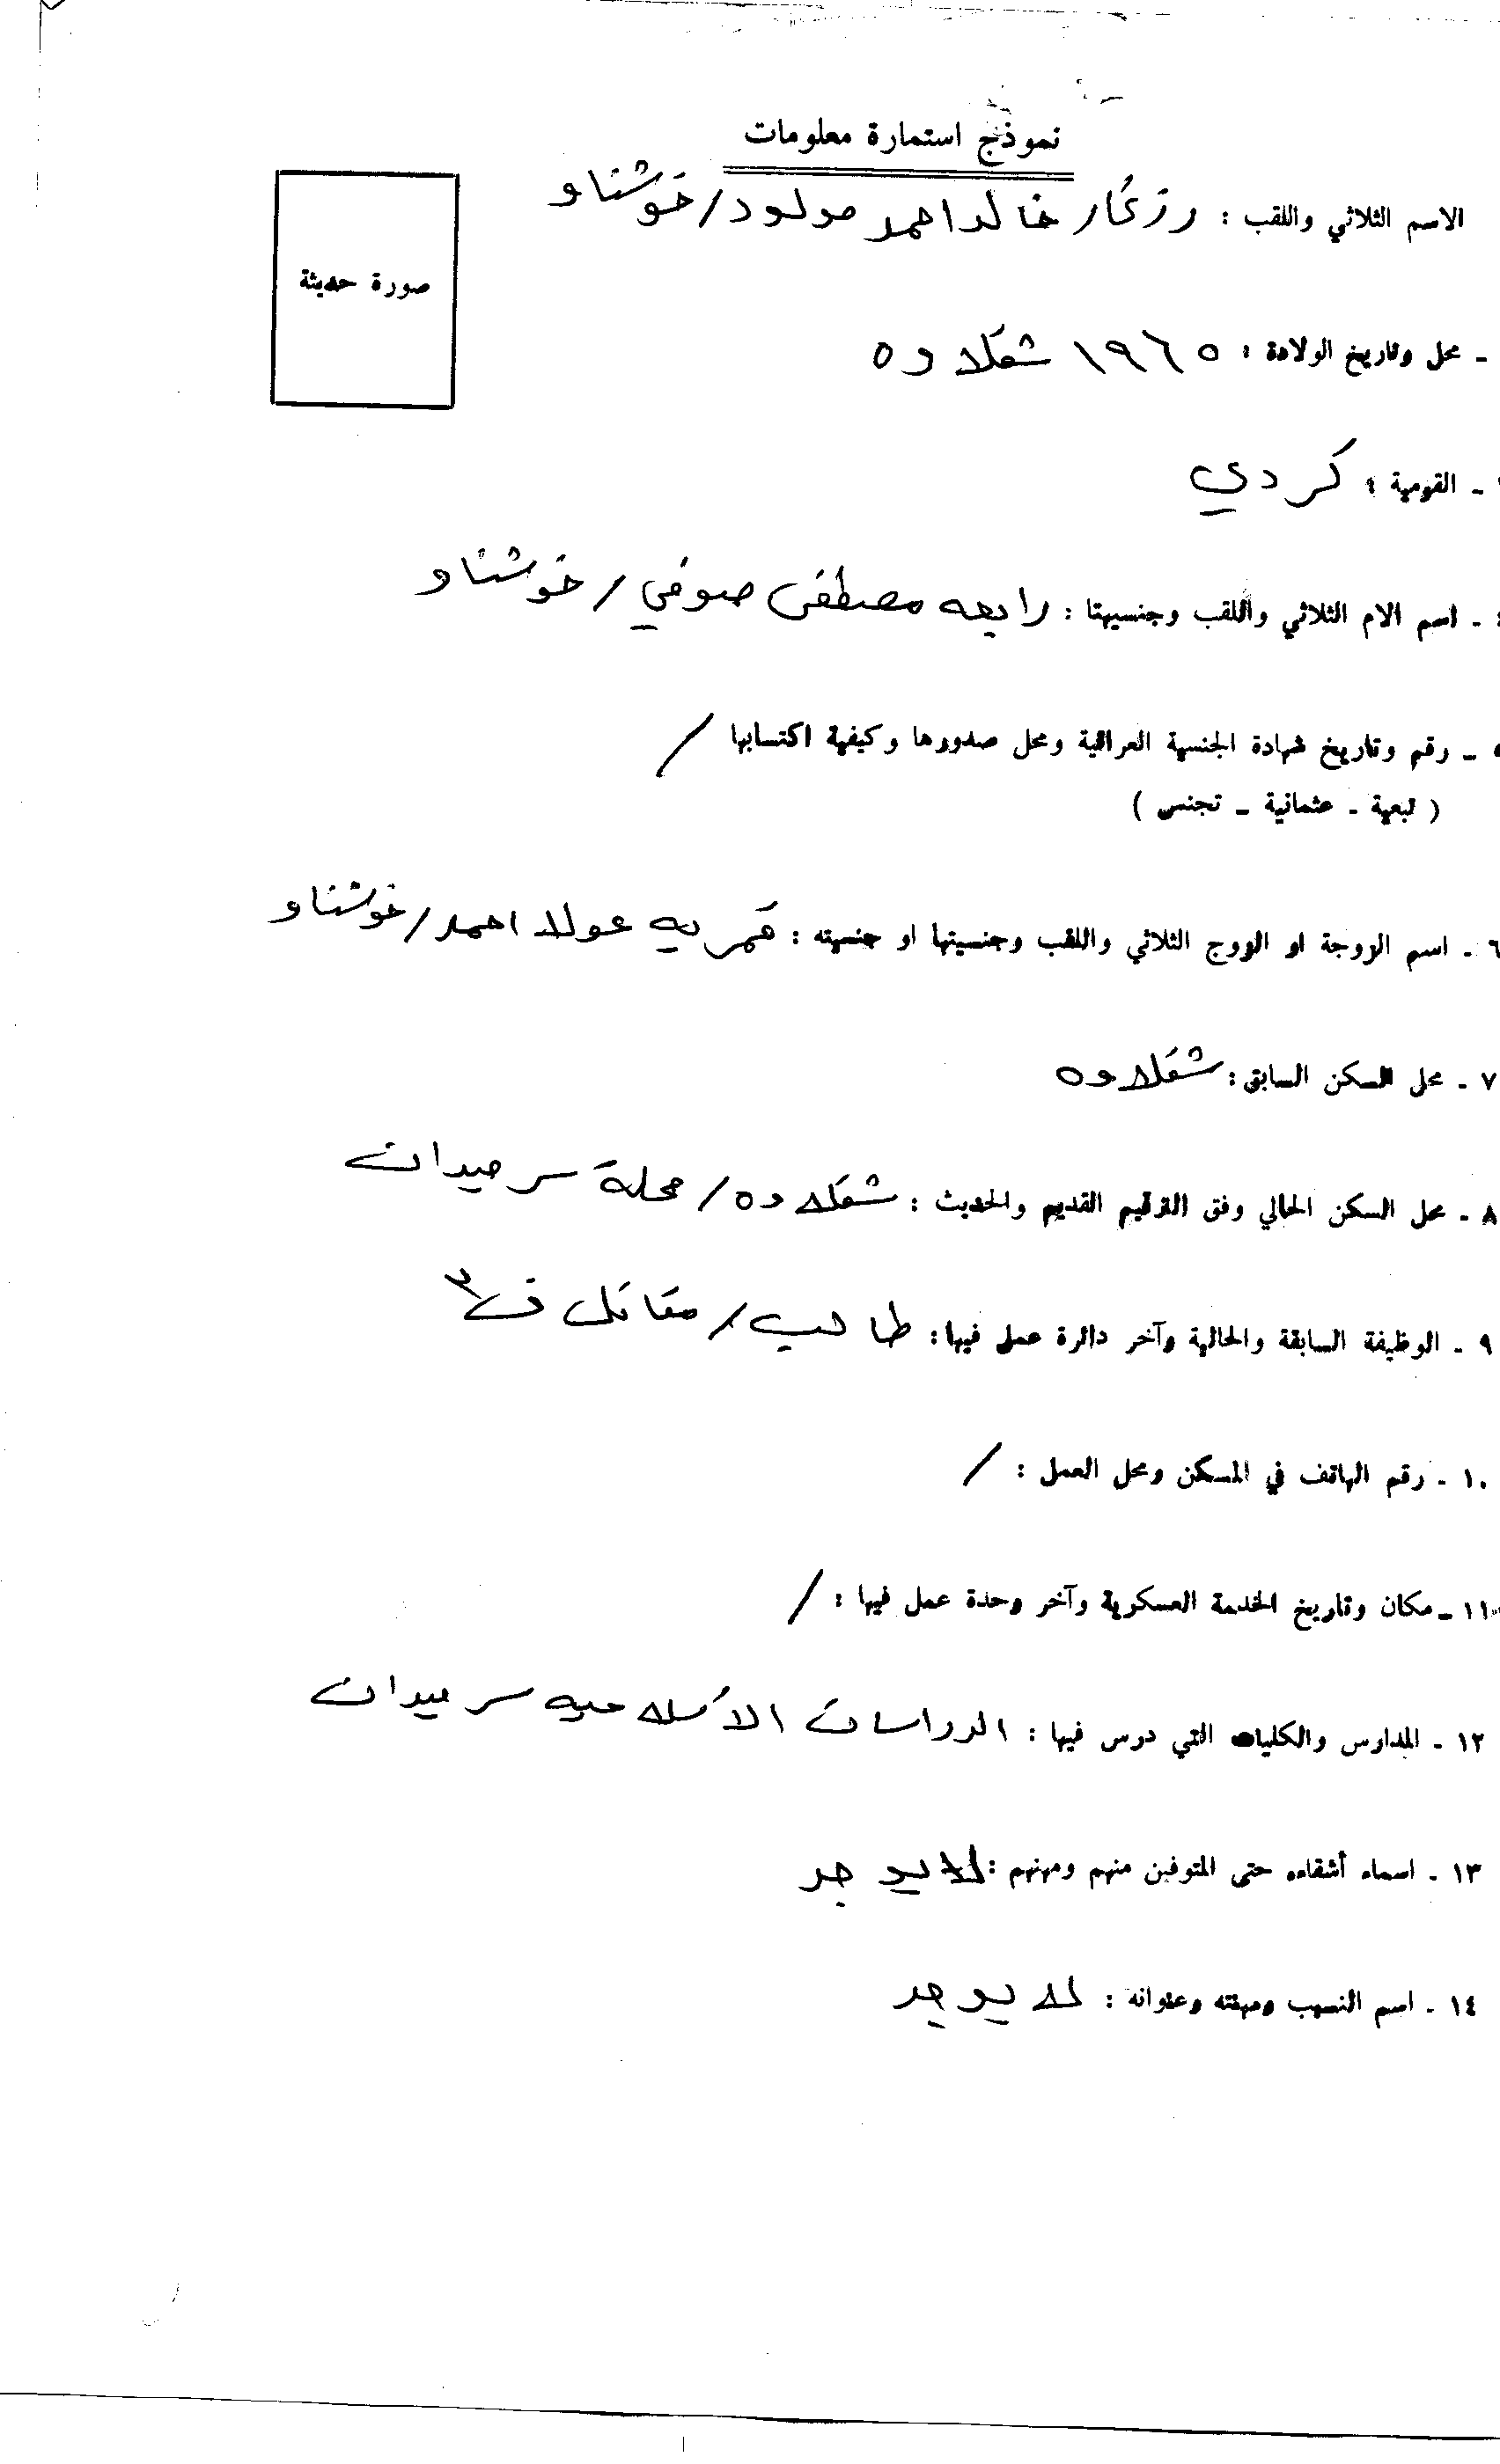 نموذج استمارة معلومات
صورة حديثة
الاسم الثلاثي واللقب : رزكار خالد احمد مولود / خوشناو
- محل وتاريخ الولادة : ١٩٦٥ شقلاوه
- القومية : كردي
٤ - اسم الام الثلاثي واللقب وجنسيتها : رابعه مصطفى صوفي / خوشناو
٥ - رقم وتاريخ شهادة الجنسية العراقية ومحل صدورها وكيفية اكتسابها /
( تبعية - عثمانية - تجنس )
٦ - اسم الزوجة او الزوج الثلاثي واللقب وجنسيتها او جنسيته : قمريه عولا احمد / خوشناو
٧ - محل السكن السابق : شقلاوه
٨ - محل السكن الحالي وفق الترقيم القديم والحديث : شقلاوه / محلة سرميدان
٩ - الوظيفة السابقة والحالية وآخر دائرة عمل فيها : طالب / مقاتل ف ٣
١٠ - رقم الهاتف في المسكن ومحل العمل : /
١١ - مكان وتاريخ الخدمة العسكرية وآخر وحدة عمل فيها : /
١٢ - المدارس والكليات التي درس فيها : الدراسات الأسلاميه سرميدان
١٣ - اسماء أشقاءه حتى المتوفين منهم ومهنهم : لا يوجد
١٤ - اسم النسيب ومهنته وعنوانه : لا يوجد